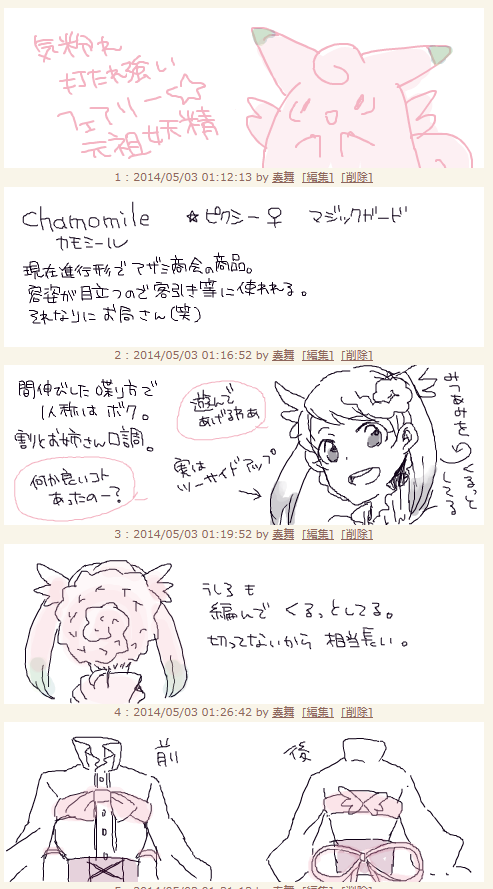 気粉れ
打たれ強い
フェアリー☆
元祖妖精
1 : 2014/05/03 01:12:13 by 奏舞 [編集] [削除]
Chamomile ☆ピクシー♀ マジックガード
カモミール
現在進行形でアザミ商会の商品。
容姿が目立つので客引き等に使われる。
それなりにお局さん(笑)
2 : 2014/05/03 01:16:52 by 奏舞 [編集] [削除]
間伸びした喋り方で
1人称はボク。
割とお姉さん口調。
何か良いコト
あったのー?
遊んで
あげるわぁ
実は
ツーサイドアップ
みつあみを
くるっと
してる
3 : 2014/05/03 01:19:52 by 奏舞 [編集] [削除]
うしろも
編んでくるっとしてる。
切ってないから相当長い。
4 : 2014/05/03 01:26:42 by 奏舞 [編集] [削除]
前
後